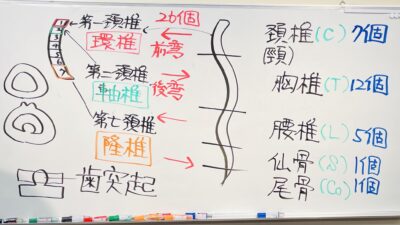 第一頚椎 26個
環椎 前弯
第二頚椎 後弯
軸椎
第七頚椎
隆椎
歯突起
頚椎(C) 7個
(頸)
胸椎(T) 12個
腰椎(L) 5個
仙骨(S) 1個
尾骨(Co) 1個